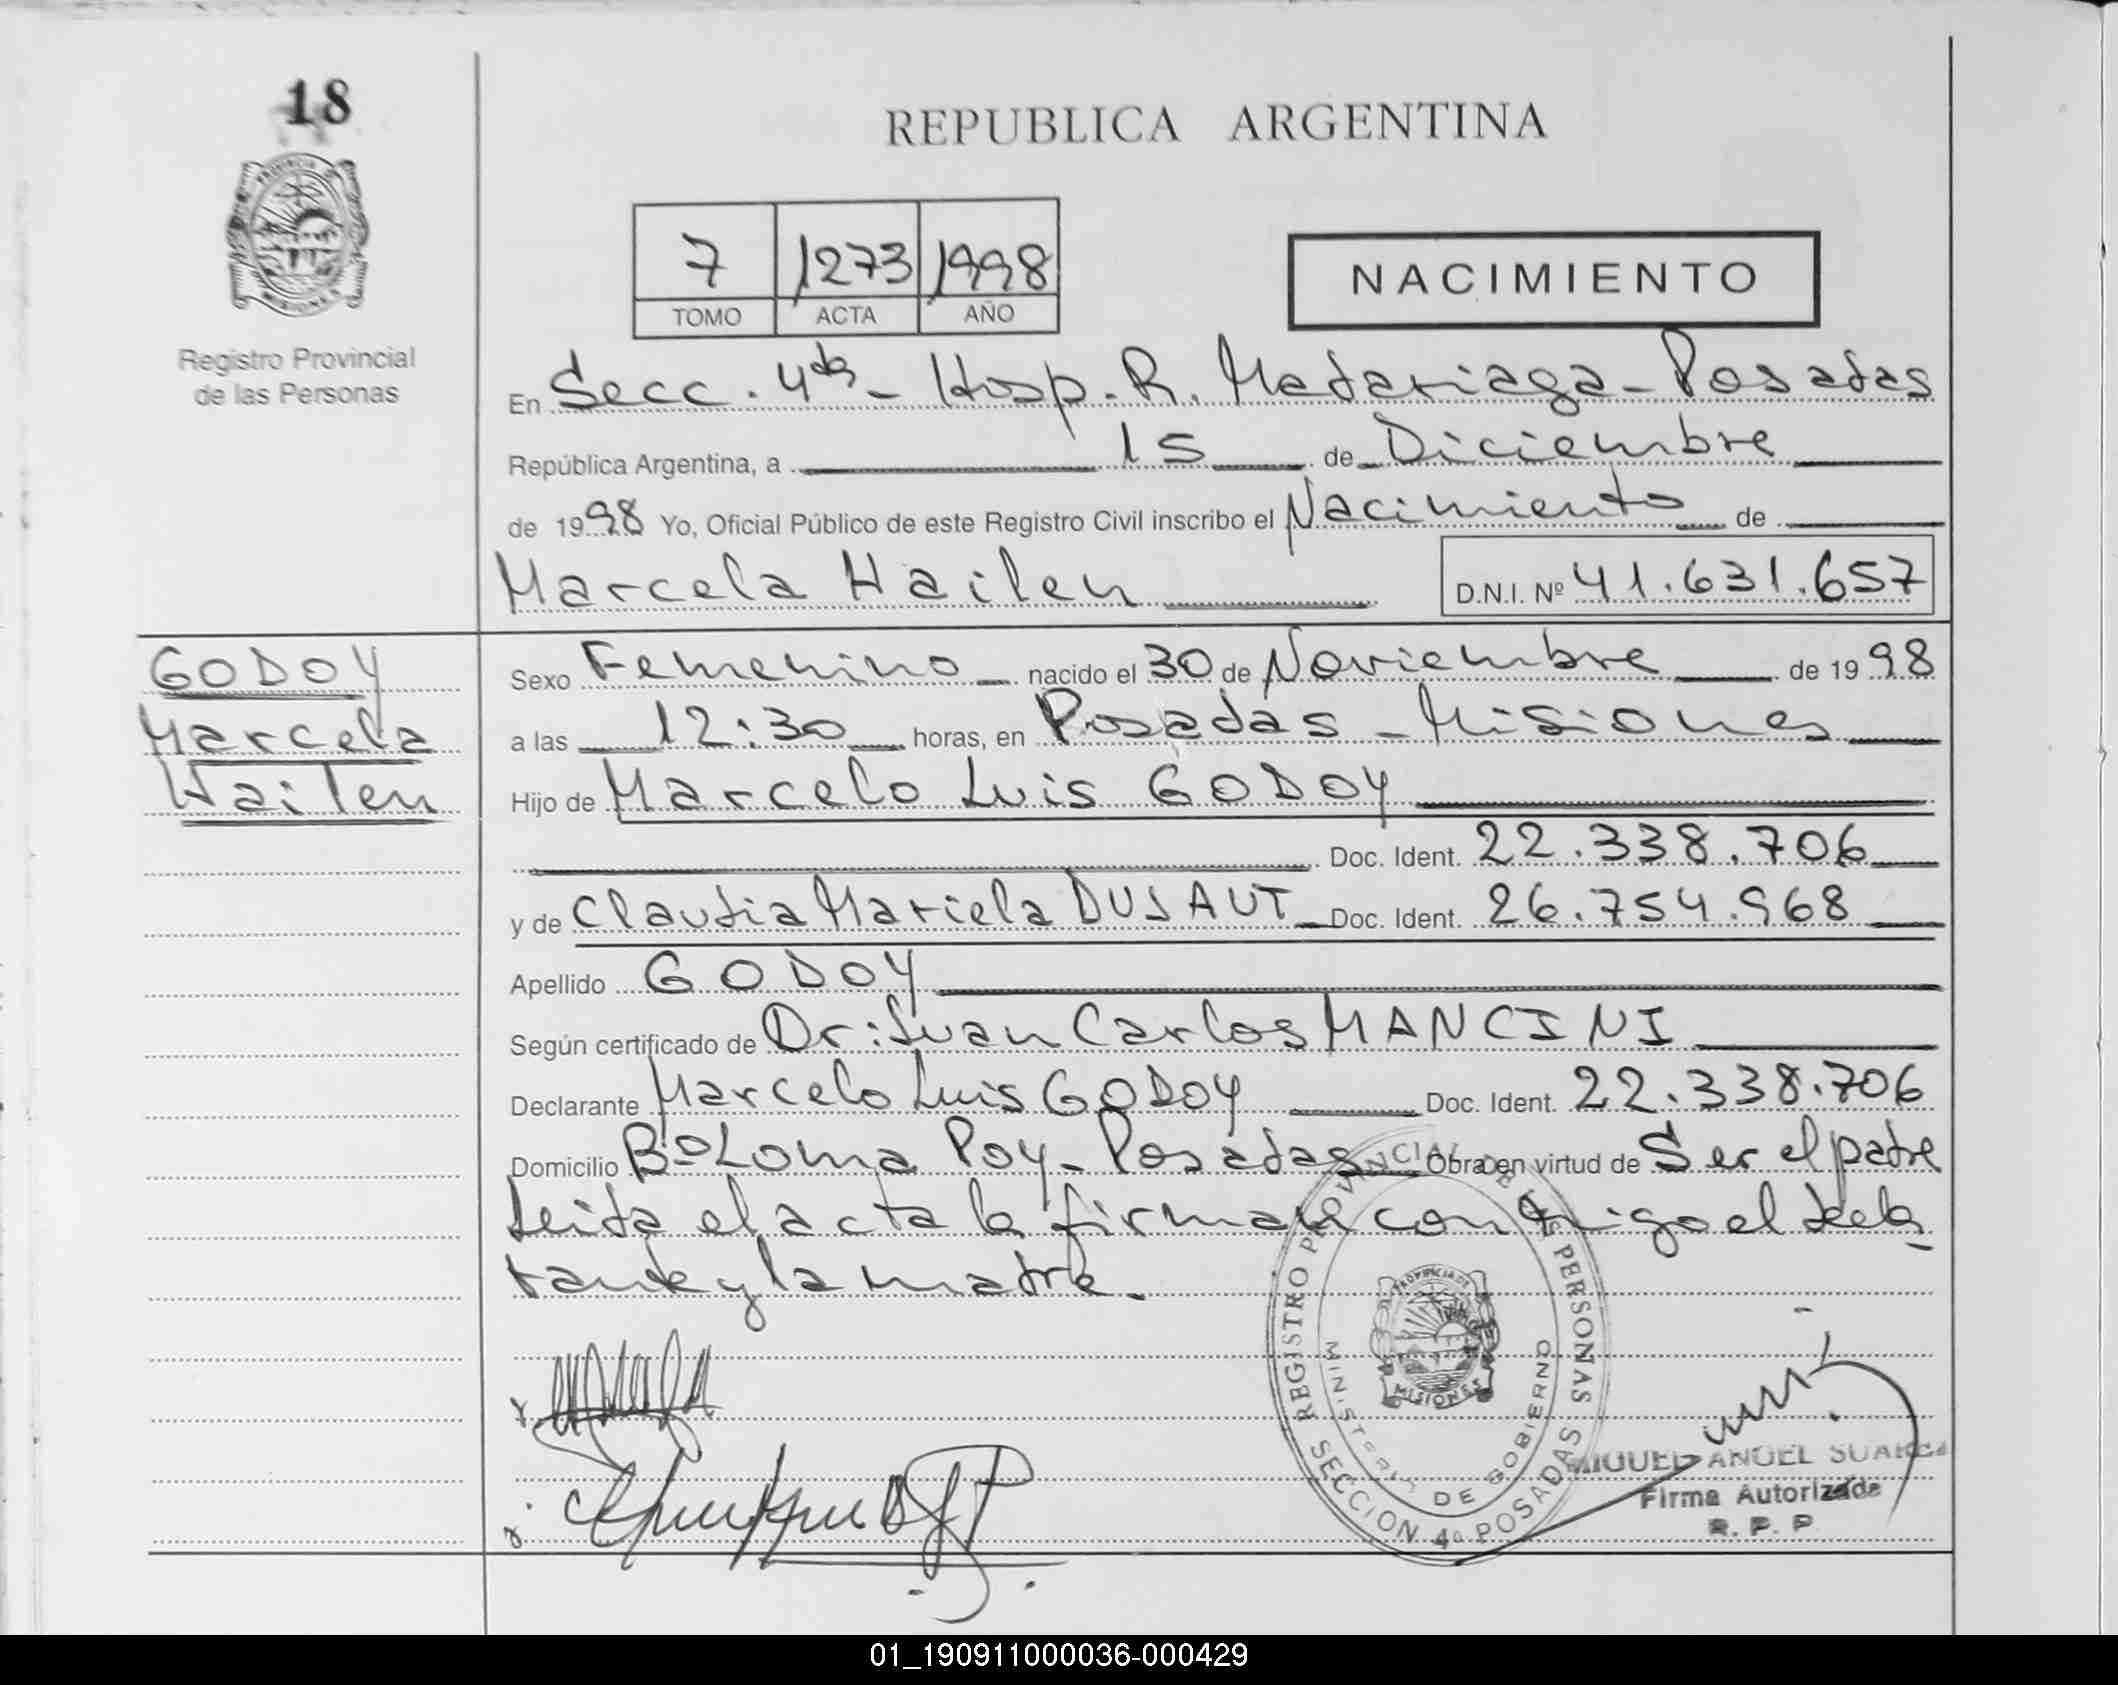 18
REPUBLICA ARGENTINA
7 1273 1998
TOMO ACTA AÑO
NACIMIENTO
Registro Provincial
de las Personas
En Secc. 4ta - Hosp. R. Madariaga - Posadas
República Argentina, a 15 de Diciembre
de 1998 Yo, Oficial Público de este Registro Civil inscribo el Nacimiento de
Marcela Hailen D.N.I. Nº 41.631.657
GODOY
Marcela
Hailen
Sexo Femenino nacido el 30 de Noviembre de 1998
a las 12:30 horas, en Posadas - Misiones
Hijo de Marcelo Luis GODOY
Doc. Ident. 22.338.706
y de Claudia Mariela DUSAUT Doc. Ident. 26.754.968
Apellido GODOY
Según certificado de Dr: Juan Carlos MANCINI
Declarante Marcelo Luis GODOY Doc. Ident. 22.338.706
Domicilio Bº Loma Poy - Posadas Obra en virtud de Ser el padre
Leida el acta la firman conmigo el decla
rante y la madre.
REGISTRO PROVINCIAL DE LAS PERSONAS
MINISTERIO DE GOBIERNO
PROVINCIA DE
MISIONES
SECCION 4º POSADAS
MIGUEL ANGEL SUAREZ
Firma Autorizada
R. P. P
01_190911000036-000429